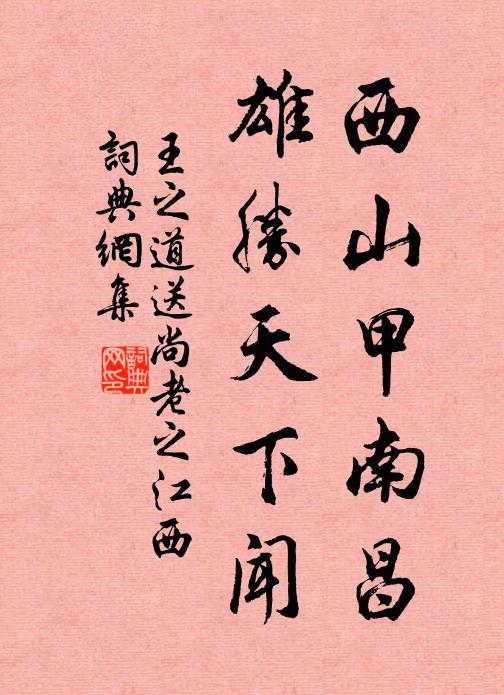 西山甲南昌
雄勝天下闻
王之道送尚老之江西
詞典網集
詞典
网印